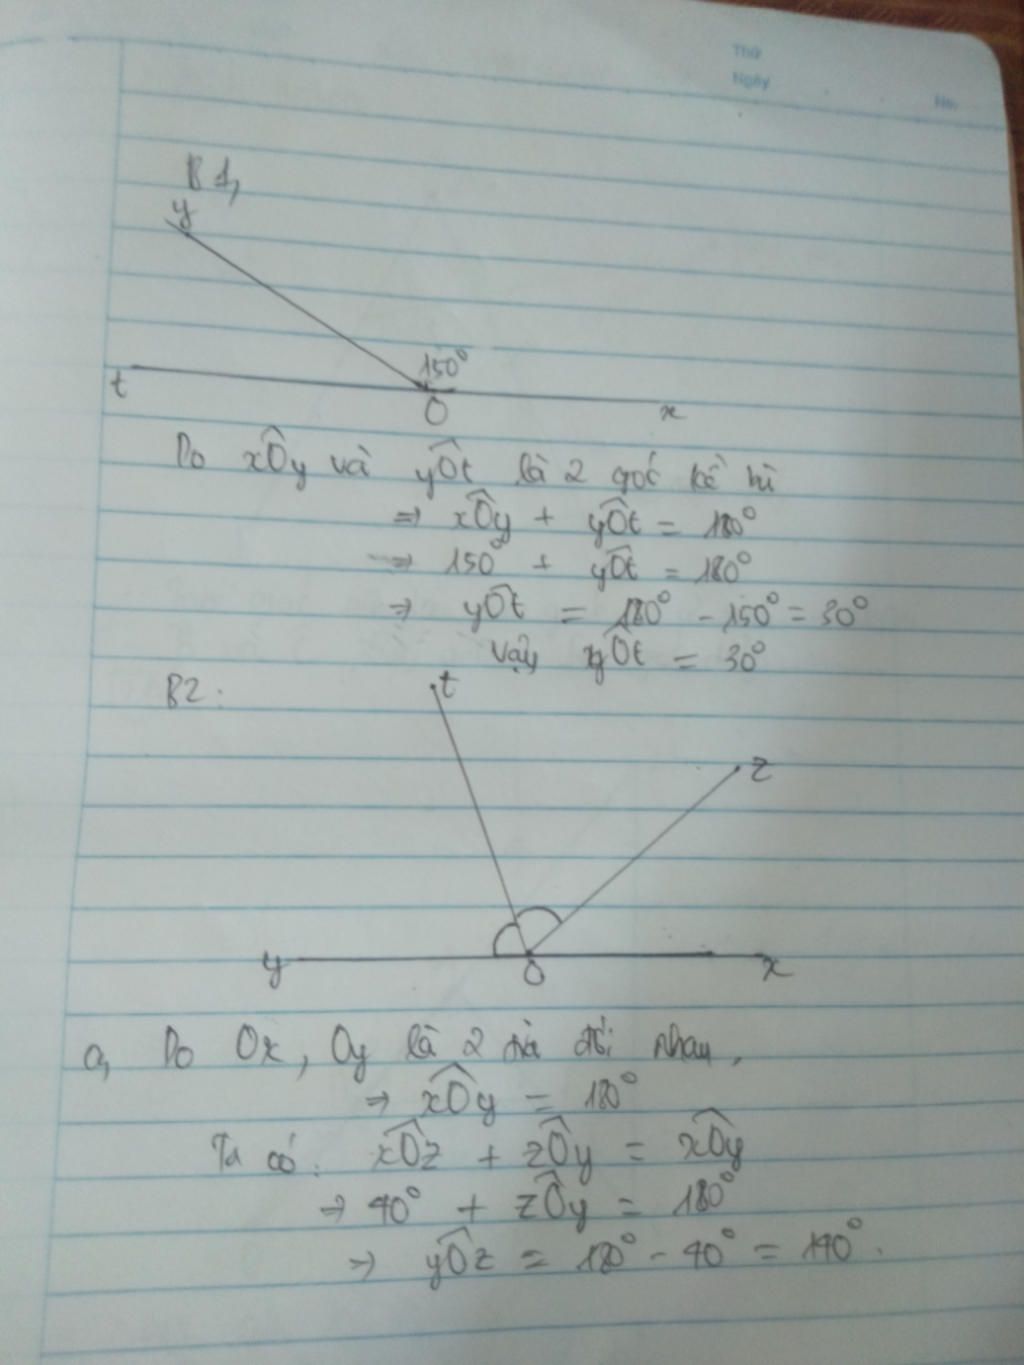 Thứ
Ngày
No.
B1,
y
150°
t
O
x
Do xÔy và yÔt là 2 góc kề bù
⇒ xÔy + yÔt = 180°
⇒ 150° + yÔt = 180°
⇒ yÔt = 180° - 150° = 30°
Vậy yÔt = 30°
B2:
t
z
y
O
x
a, Do Ox, Oy là 2 tia đối nhau,
⇒ xÔy = 180°
Ta có: xÔz + zÔy = xÔy
⇒ 40° + zÔy = 180°
⇒ yÔz = 180° - 40° = 140°.